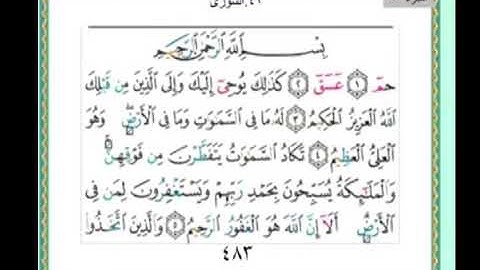 ٤٢.الشورى
بِسْمِ اللَّهِ الرَّحْمَٰنِ الرَّحِيمِ
حمٓ ١ عٓسٓقٓ ٢ كَذَٰلِكَ يُوحِىٓ إِلَيْكَ وَإِلَى الَّذِينَ مِن قَبْلِكَ
اللَّهُ الْعَزِيزُ الْحَكِيمُ ٣ لَهُ مَا فِى السَّمَٰوَٰتِ وَمَا فِى الْأَرْضِ ۖ وَهُوَ
الْعَلِىُّ الْعَظِيمُ ٤ تَكَادُ السَّمَٰوَٰتُ يَتَفَطَّرْنَ مِن فَوْقِهِنَّ ۚ
وَالْمَلَٰٓئِكَةُ يُسَبِّحُونَ بِحَمْدِ رَبِّهِمْ وَيَسْتَغْفِرُونَ لِمَن فِى
الْأَرْضِ ۗ أَلَآ إِنَّ اللَّهَ هُوَ الْغَفُورُ الرَّحِيمُ ٥ وَالَّذِينَ اتَّخَذُوا
٤٨٣